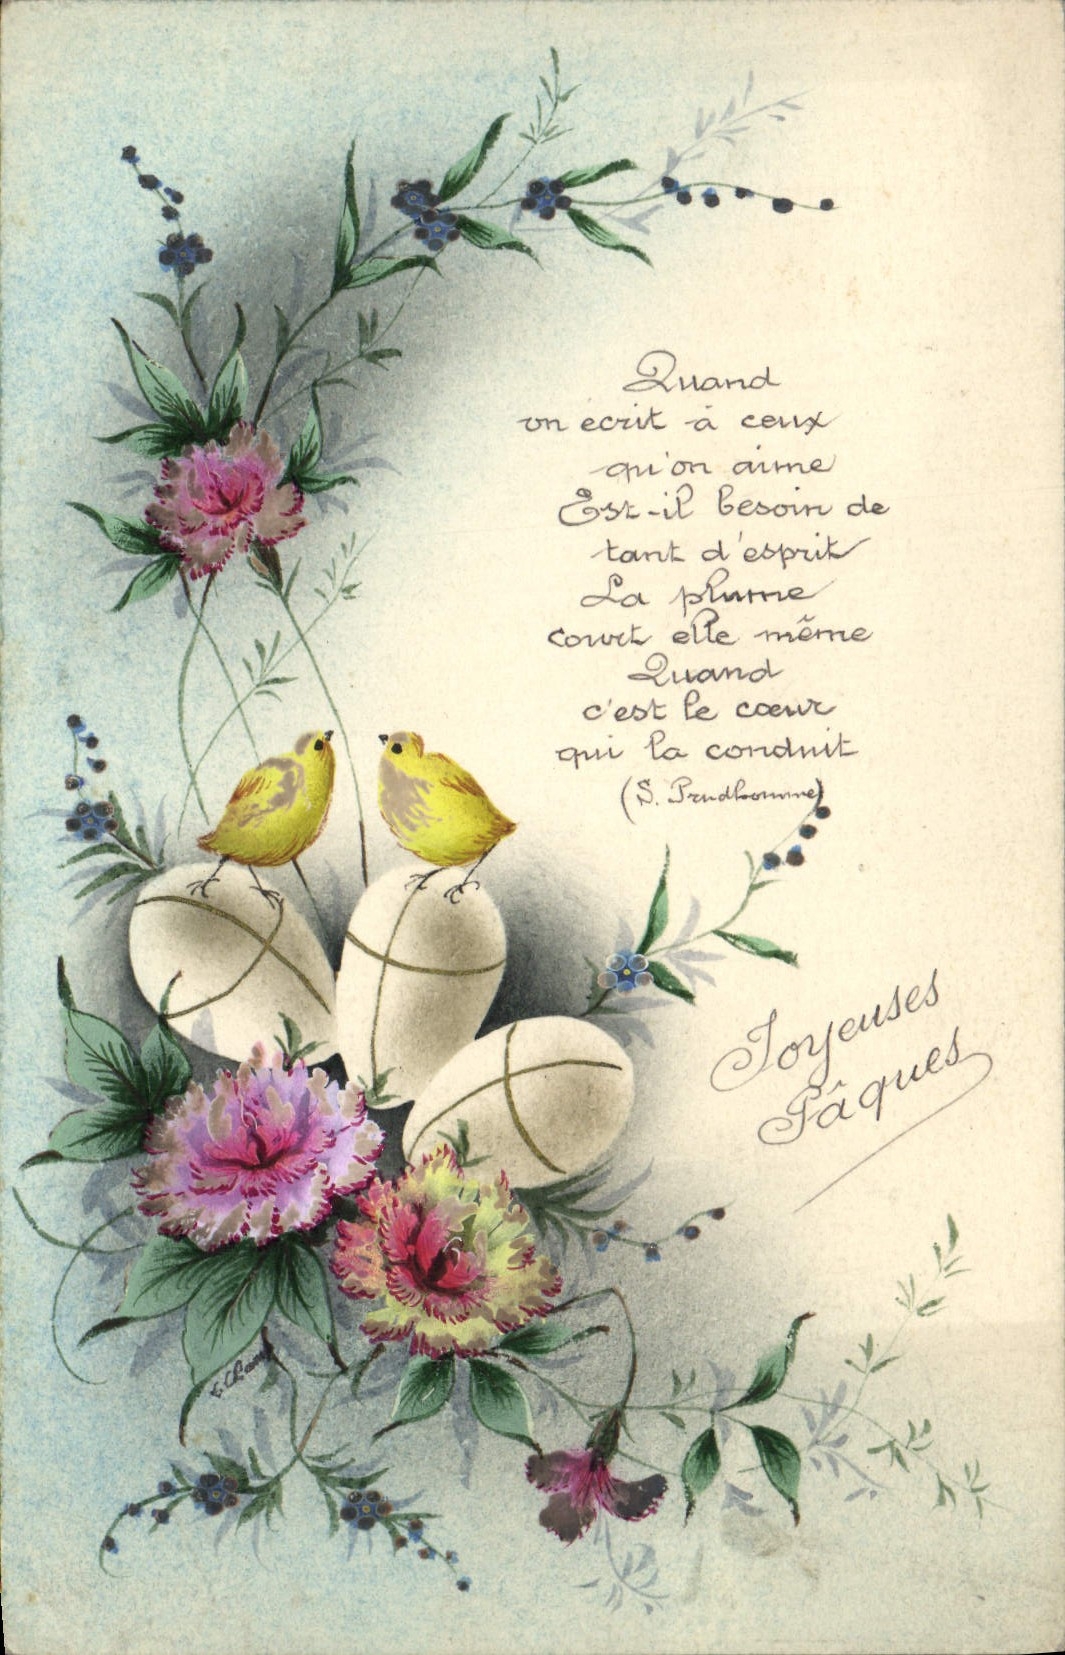 Quand
on écrit à ceux
qu'on aime
Est-il besoin de
tant d'esprit
La plume
court elle même
Quand
c'est le cœur
qui la conduit
(S. Prudhomme)
Joyeuses
Pâques